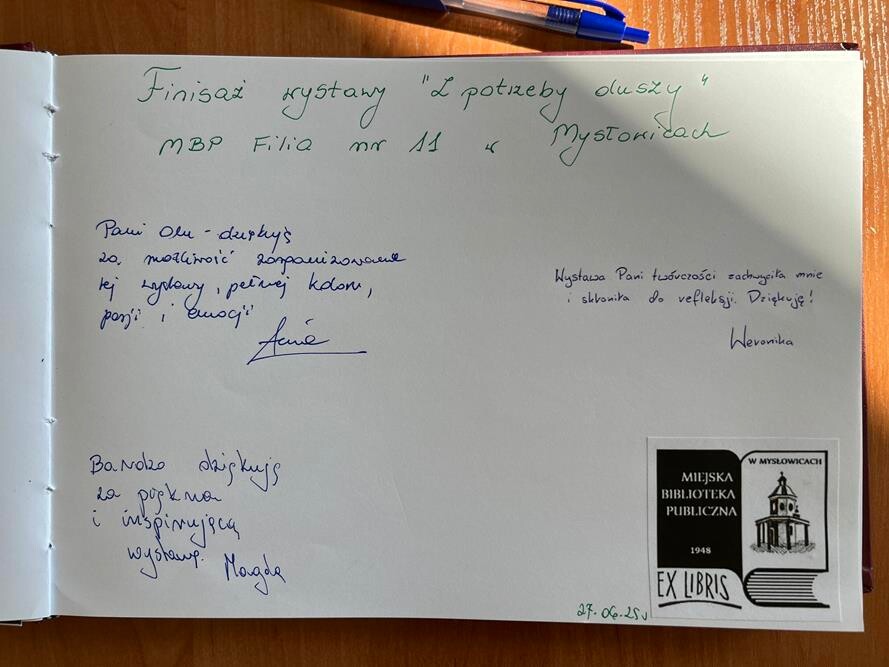 Finisaż wystawy "Z potrzeby duszy"
MBP Filia nr 11 w Mysłowicach
Pani Olu - dziękuję
za możliwość zorganizowania
tej wystawy, pełnej koloru,
pasji i emocji
Ania
Wystawa Pani twórczości zachwyciła mnie
i skłoniła do refleksji. Dziękuję!
Weronika
Bardzo dziękuję
za piękną
i inspirującą
wystawę.
Magda
MIEJSKA
BIBLIOTEKA
PUBLICZNA
1948
W MYSŁOWICACH
EX LIBRIS
27.06.25r